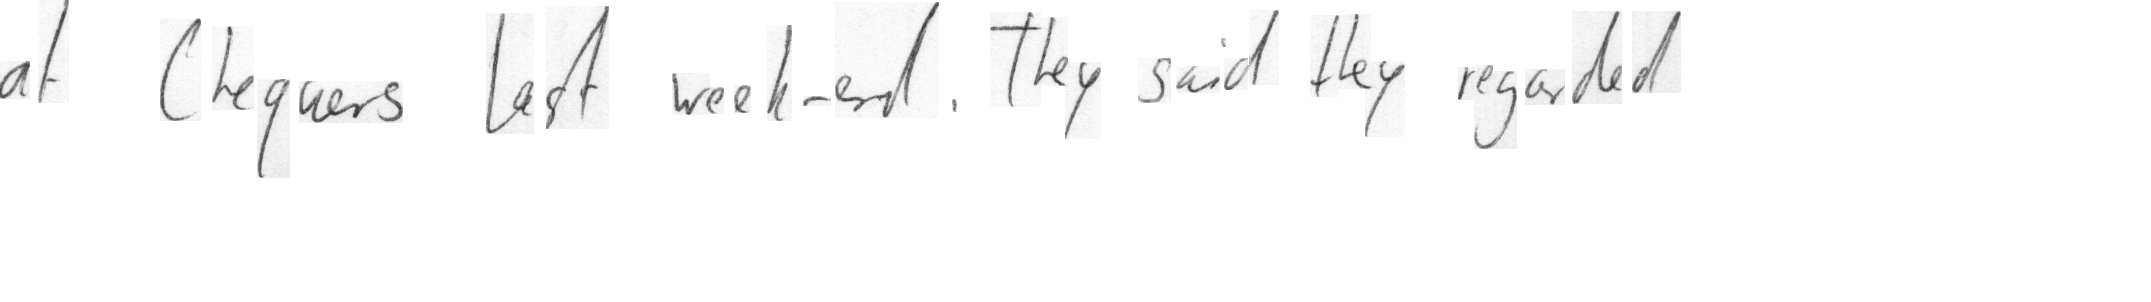 at Chequers last week-end. They said they regarded